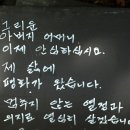 그리운
아버지 어머니
이제 안심하십시요.
제 삶에
평화가 왔습니다.
멈추지 않는 열정과
의지로 열심히 살겠습니다